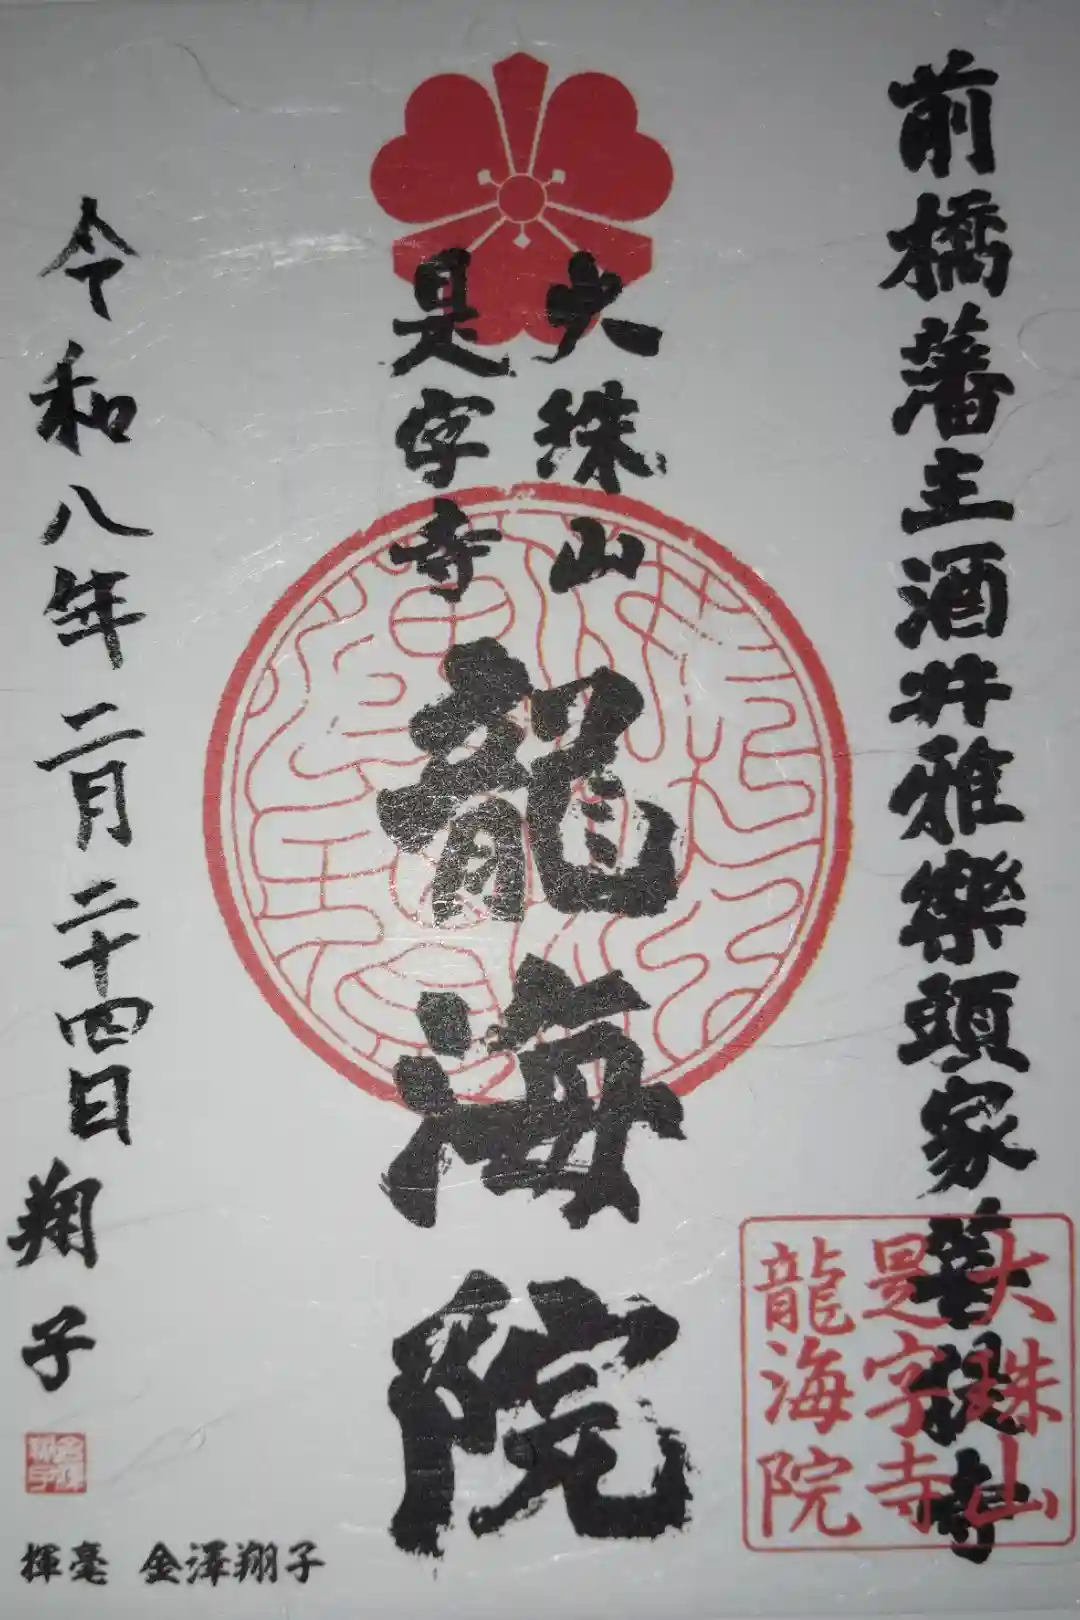 前橋藩主酒井雅樂頭家菩提寺
大珠山
是字寺
龍海院
令和八年二月二十四日
翔子
揮毫 金澤翔子
大珠山
是字寺
龍海院